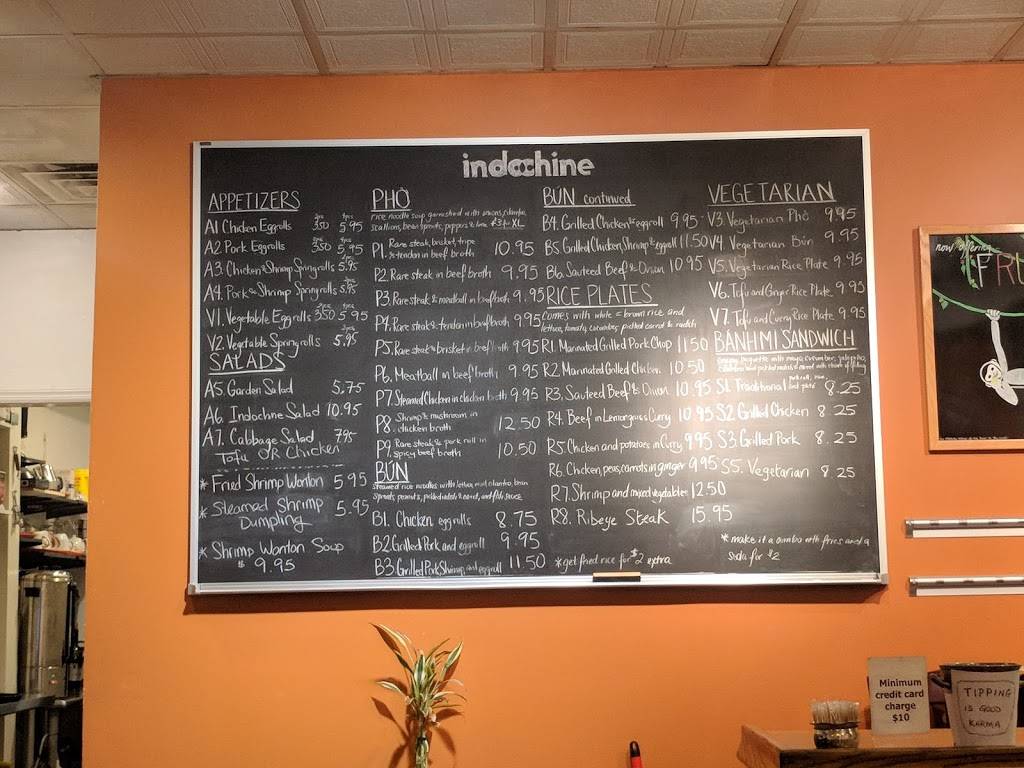 indochine
APPETIZERS
2pcs 4pcs
A1 Chicken Eggrolls 3.50 5.95
A2 Pork Eggrolls 3.50 5.95
A3. Chicken & Shrimp Springrolls 5.95
A4. Pork & Shrimp Springrolls 5.95
V1. Vegetable Eggrolls 3.50 5.95
V2. Vegetable Springrolls 5.95
SALADS
A5. Garden Salad 5.75
A6. Indochine Salad 10.95
A7. Cabbage Salad 7.95
Tofu OR Chicken
* Fried Shrimp Wonton 5.95
* Steamed Shrimp 5.95
Dumpling
* Shrimp Wonton Soup
$ 9.95
PHỞ
rice noodle soup garnished with onions, cilantro,
scallions, bean sprouts, peppers & lime XL
P1. Rare steak, brisket, tripe 10.95
& tendon in beef broth
P2. Rare steak in beef broth 9.95
P3. Rare steak & meatball in beef broth 9.95
P4. Rare steak & tendon in beef broth 9.95
P5. Rare steak & brisket in beef broth 9.95
P6. Meatball in beef broth 9.95
P7. Steamed Chicken in chicken broth 9.95
P8. Shrimp & mushroom in 12.50
chicken broth
P9. Rare steak & pork roll in 10.50
spicy beef broth
BÚN
Steamed rice noodles with lettuce, mint, cilantro, bean
sprouts, peanuts, pickled radish & carrot, and fish sauce
B1. Chicken eggrolls 8.75
B2. Grilled Pork and eggroll 9.95
B3. Grilled Pork, Shrimp, and eggroll 11.50
BÚN continued
B4. Grilled Chicken & eggroll 9.95
B5. Grilled Chicken, Shrimp & eggroll 11.50
B6. Sauteed Beef & Onion 10.95
RICE PLATES
Comes with white or brown rice and
lettuce, tomato, cucumber, pickled carrot & radish
R1. Marinated Grilled Pork Chop 11.50
R2. Marinated Grilled Chicken 10.50
R3. Sauteed Beef & Onion 10.95
R4. Beef in Lemongrass Curry 10.95
R5. Chicken and potatoes in Curry 9.95
R6. Chicken, peas, carrots in ginger 9.95
R7. Shrimp and mixed vegetables 12.50
R8. Ribeye Steak 15.95
*get fried rice for $2 extra
VEGETARIAN
V3. Vegetarian Phở 9.95
V4 Vegetarian Bún 9.95
V5. Vegetarian Rice Plate 9.95
V6. Tofu and Ginger Rice Plate 9.95
V7. Tofu and Curry Rice Plate 9.95
BANH MI SANDWICH
baguette with mayo, cucumber, jalapeño,
S1. Traditional 8.25
S2 Grilled Chicken 8.25
S3. Grilled Pork 8.25
S5. Vegetarian 8.25
* make it a combo with fries and a
soda for $2
now offering
FRU
Minimum
credit card
charge
$10
TIPPING
IS GOOD
KARMA